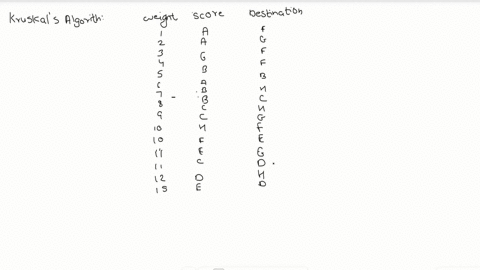 Kruskal's Algorith: weight score Destination
1 A F
2 A G
3 G F
4 B F
5 A B
6 B H
7 - B C
8 C H
9 C G
10 H F
10 F E
11 E G
11 C D .
12 D H
15 E D